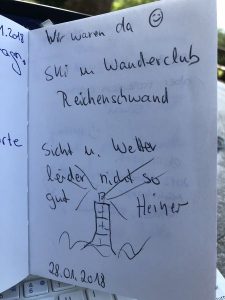 1.2018
ragn,
orte
Wir waren da ☺
Ski u. Wanderclub
Reichenschwand
Sicht u. Wetter
leider nicht so
gut
Heiner
28.01.2018